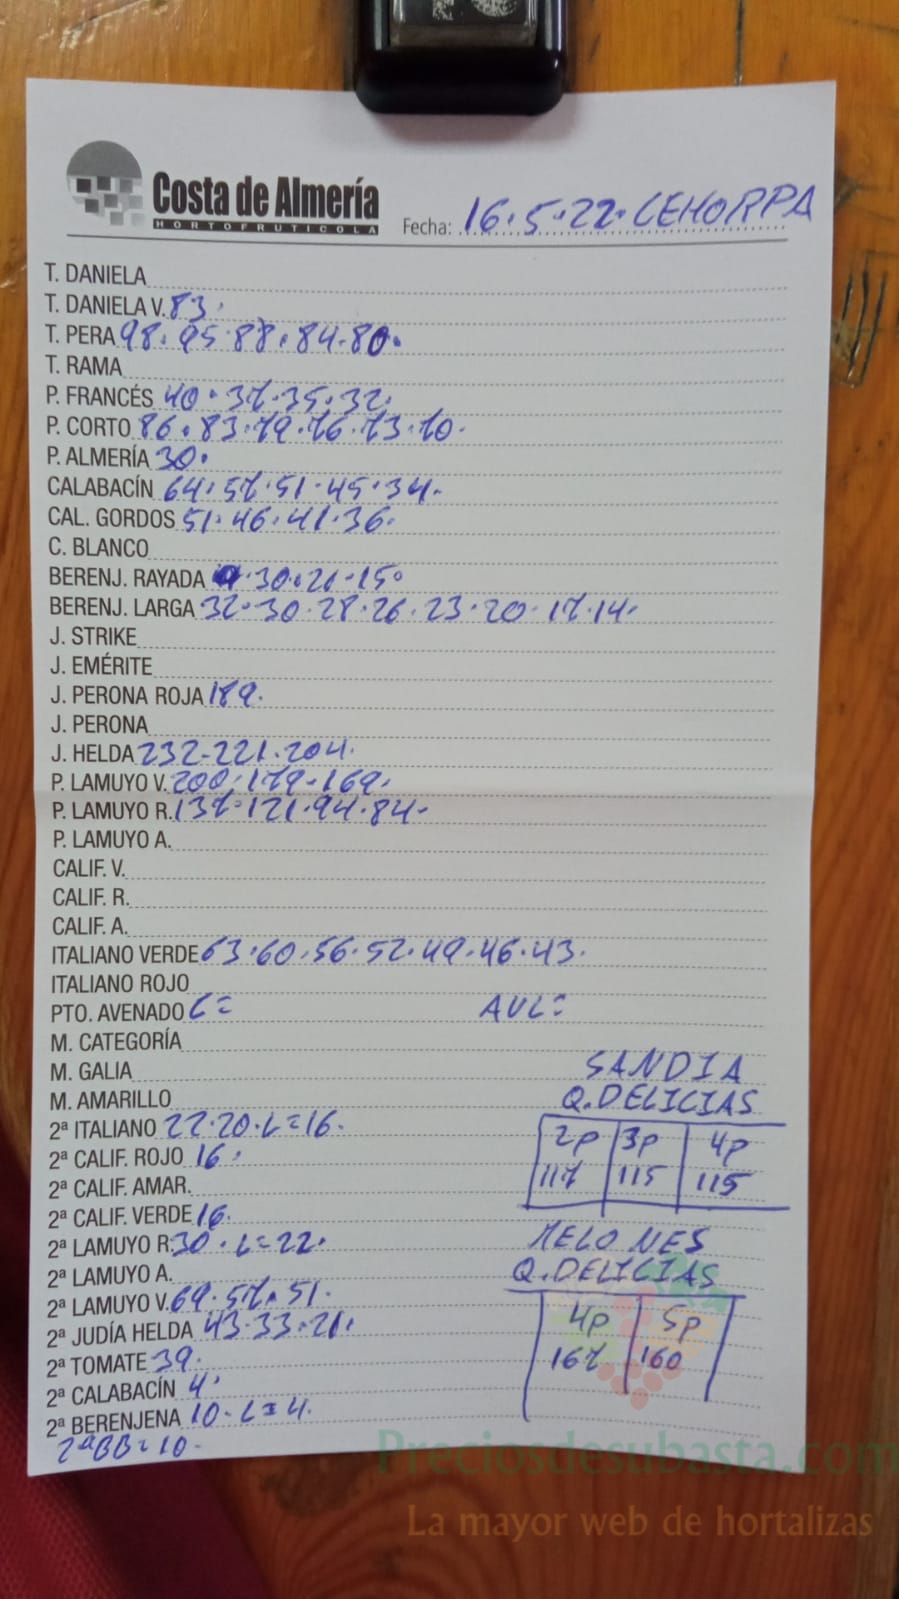 Costa de Almería
HORTOFRUTICOLA
Fecha: 16.5.22. CEHORPA
T. DANIELA
T. DANIELA V. 83.
T. PERA 98. 95. 88. 84. 80.
T. RAMA
P. FRANCÉS 40. 37. 35. 32.
P. CORTO 86. 83. 79. 76. 73. 70.
P. ALMERÍA 30.
CALABACÍN 64. 57. 51. 45. 34.
CAL. GORDOS 51. 46. 41. 36.
C. BLANCO
BERENJ. RAYADA 30. 21. 15.
BERENJ. LARGA 32. 30. 28. 26. 23. 20. 17. 14.
J. STRIKE
J. EMÉRITE
J. PERONA ROJA 189.
J. PERONA
J. HELDA 232-221.204.
P. LAMUYO V. 200. 179. 169.
P. LAMUYO R. 137. 121. 94. 84.
P. LAMUYO A.
CALIF. V.
CALIF. R.
CALIF. A.
ITALIANO VERDE 63. 60. 56. 52. 49. 46. 43.
ITALIANO ROJO
PTO. AVENADO L= AVL=
M. CATEGORÍA
M. GALIA
M. AMARILLO
2ª ITALIANO 22. 20. L=16.
2ª CALIF. ROJO 16.
2ª CALIF. AMAR.
2ª CALIF. VERDE 16.
2ª LAMUYO R. 30. L=22.
2ª LAMUYO A.
2ª LAMUYO V. 69. 57. 51.
2ª JUDÍA HELDA 43. 33. 21.
2ª TOMATE 39.
2ª CALABACÍN 4.
2ª BERENJENA 10. L=4.
2ªBB=10.
SANDIA
Q.DELICIAS
2P 3P 4P
117 115 115
MELONES
Q.DELICIAS
4P 5P
167 160
Preciosdesubasta.com
La mayor web de hortalizas